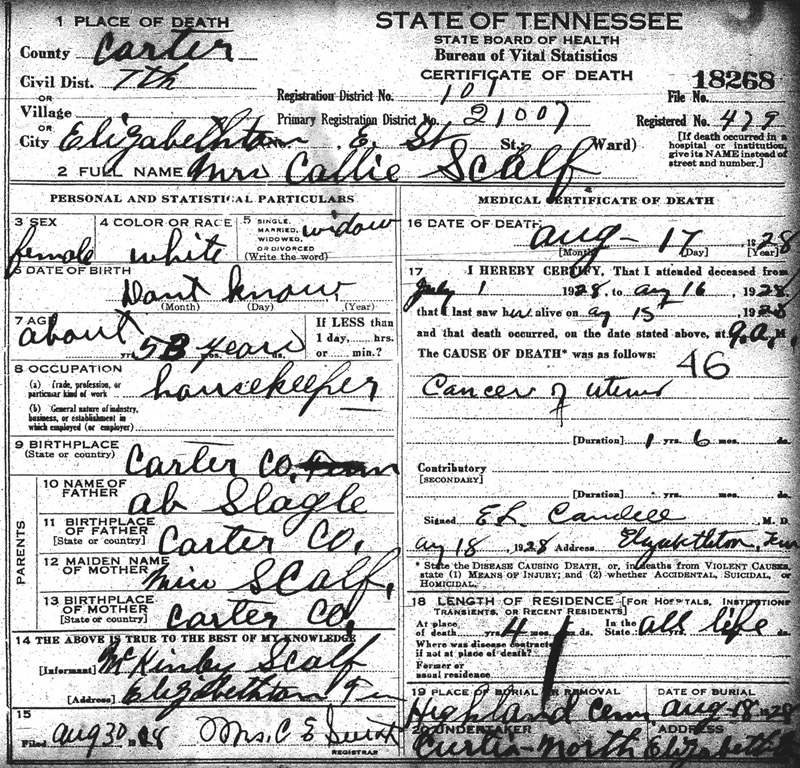 STATE OF TENNESSEE
STATE BOARD OF HEALTH
Bureau of Vital Statistics
CERTIFICATE OF DEATH
1 PLACE OF DEATH
County Carter
Civil Dist. 7th
OR
Village
OR
City Elizabethton E. St. St.; Ward)
Registration District No. 101
Primary Registration District No. 21007
18268
File No.
Registered No. 479
[If death occurred in a
hospital or institution,
give its NAME instead of
street and number.]
2 FULL NAME Mrs Callie Scalf
PERSONAL AND STATISTICAL PARTICULARS
3 SEX female
4 COLOR OR RACE white
5 SINGLE, MARRIED, WIDOWED, OR DIVORCED (Write the word) widow
6 DATE OF BIRTH
Dont know
(Month) (Day) (Year)
7 AGE about
yrs. 53 mos. years ds.
If LESS than
1 day, hrs.
or min.?
8 OCCUPATION
(a) Trade, profession, or
particular kind of work
housekeeper
(b) General nature of industry,
business, or establishment in
which employed (or employer)
9 BIRTHPLACE
(State or country) Carter Co,
PARENTS
10 NAME OF
FATHER ab Slagle
11 BIRTHPLACE
OF FATHER
[State or country] Carter Co,
12 MAIDEN NAME
OF MOTHER Miss Scalf,
13 BIRTHPLACE
OF MOTHER
(State or country) Carter Co,
14 THE ABOVE IS TRUE TO THE BEST OF MY KNOWLEDGE
[Informant] McKinley Scalf
[Address] Elizabethton
15
Filed aug 30
Mrs. C E
REGISTRAR
MEDICAL CERTIFICATE OF DEATH
16 DATE OF DEATH
aug - 17 28
[Month] [Day] [Year]
17 I HEREBY CERTIFY, That I attended deceased from
July 1 1928, to aug 16, 1928,
that I last saw her alive on ag 15 1928
and that death occurred, on the date stated above, at 9.a,M.
The CAUSE OF DEATH* was as follows:
46
Cancer of uterus
[Duration] 1 yrs. 6 mos. ds.
Contributory
[SECONDARY]
[Duration] yrs. mos. ds.
Signed E L M. D.
ag 18, 1928 Address Elizabethton, Tenn
* State the DISEASE CAUSING DEATH, or, in deaths from VIOLENT CAUSES,
state (1) MEANS OF INJURY; and (2) whether ACCIDENTAL, SUICIDAL, or
HOMICIDAL.
18 LENGTH OF RESIDENCE [FOR HOSPITALS, INSTITUTIONS
TRANSIENTS, OR RECENT RESIDENTS]
At place
of death yrs. 4 mos. ds.
In the
State all life
Where was disease contracted
if not at place of death?
Former or
usual residence
19 PLACE OF BURIAL OR REMOVAL
Highland Cem
DATE OF BURIAL
aug-18-28
20 UNDERTAKER
Curtis-North
ADDRESS
Elizabethton